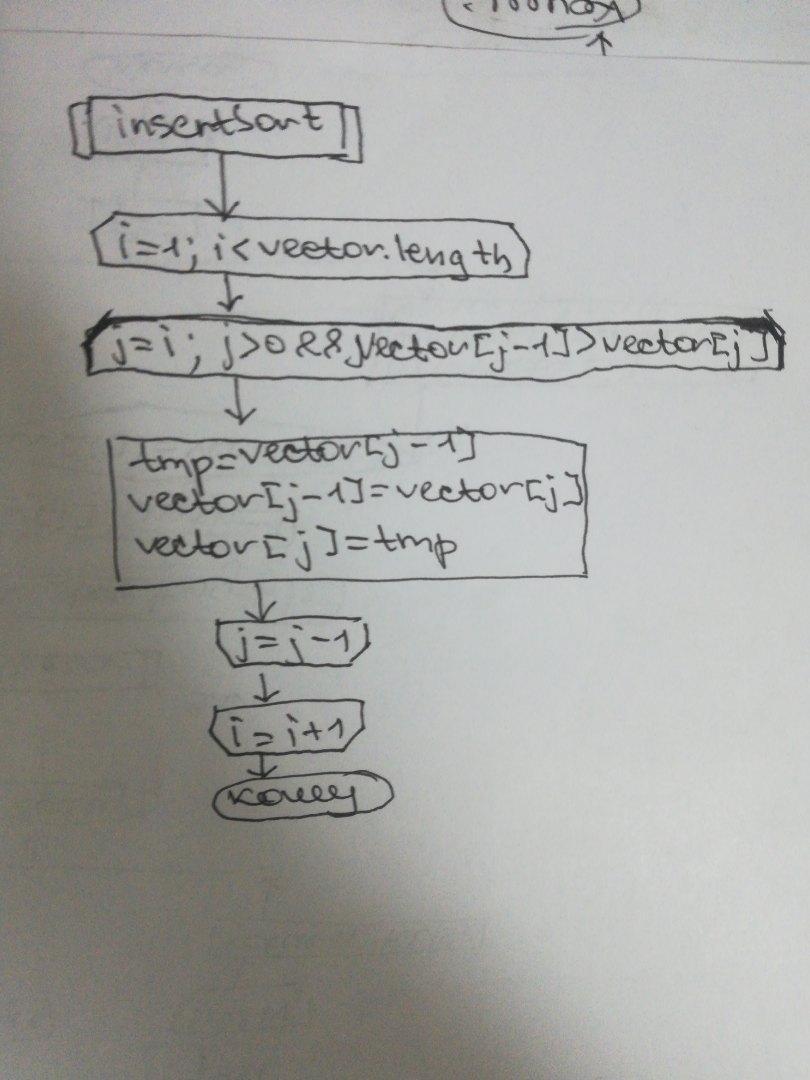 insertSort
i=1; i<vector.length
j=i; j>0 && vector[j-1]>vector[j]
tmp=vector[j-1]
vector[j-1]=vector[j]
vector[j]=tmp
j=j-1
i=i+1
конец